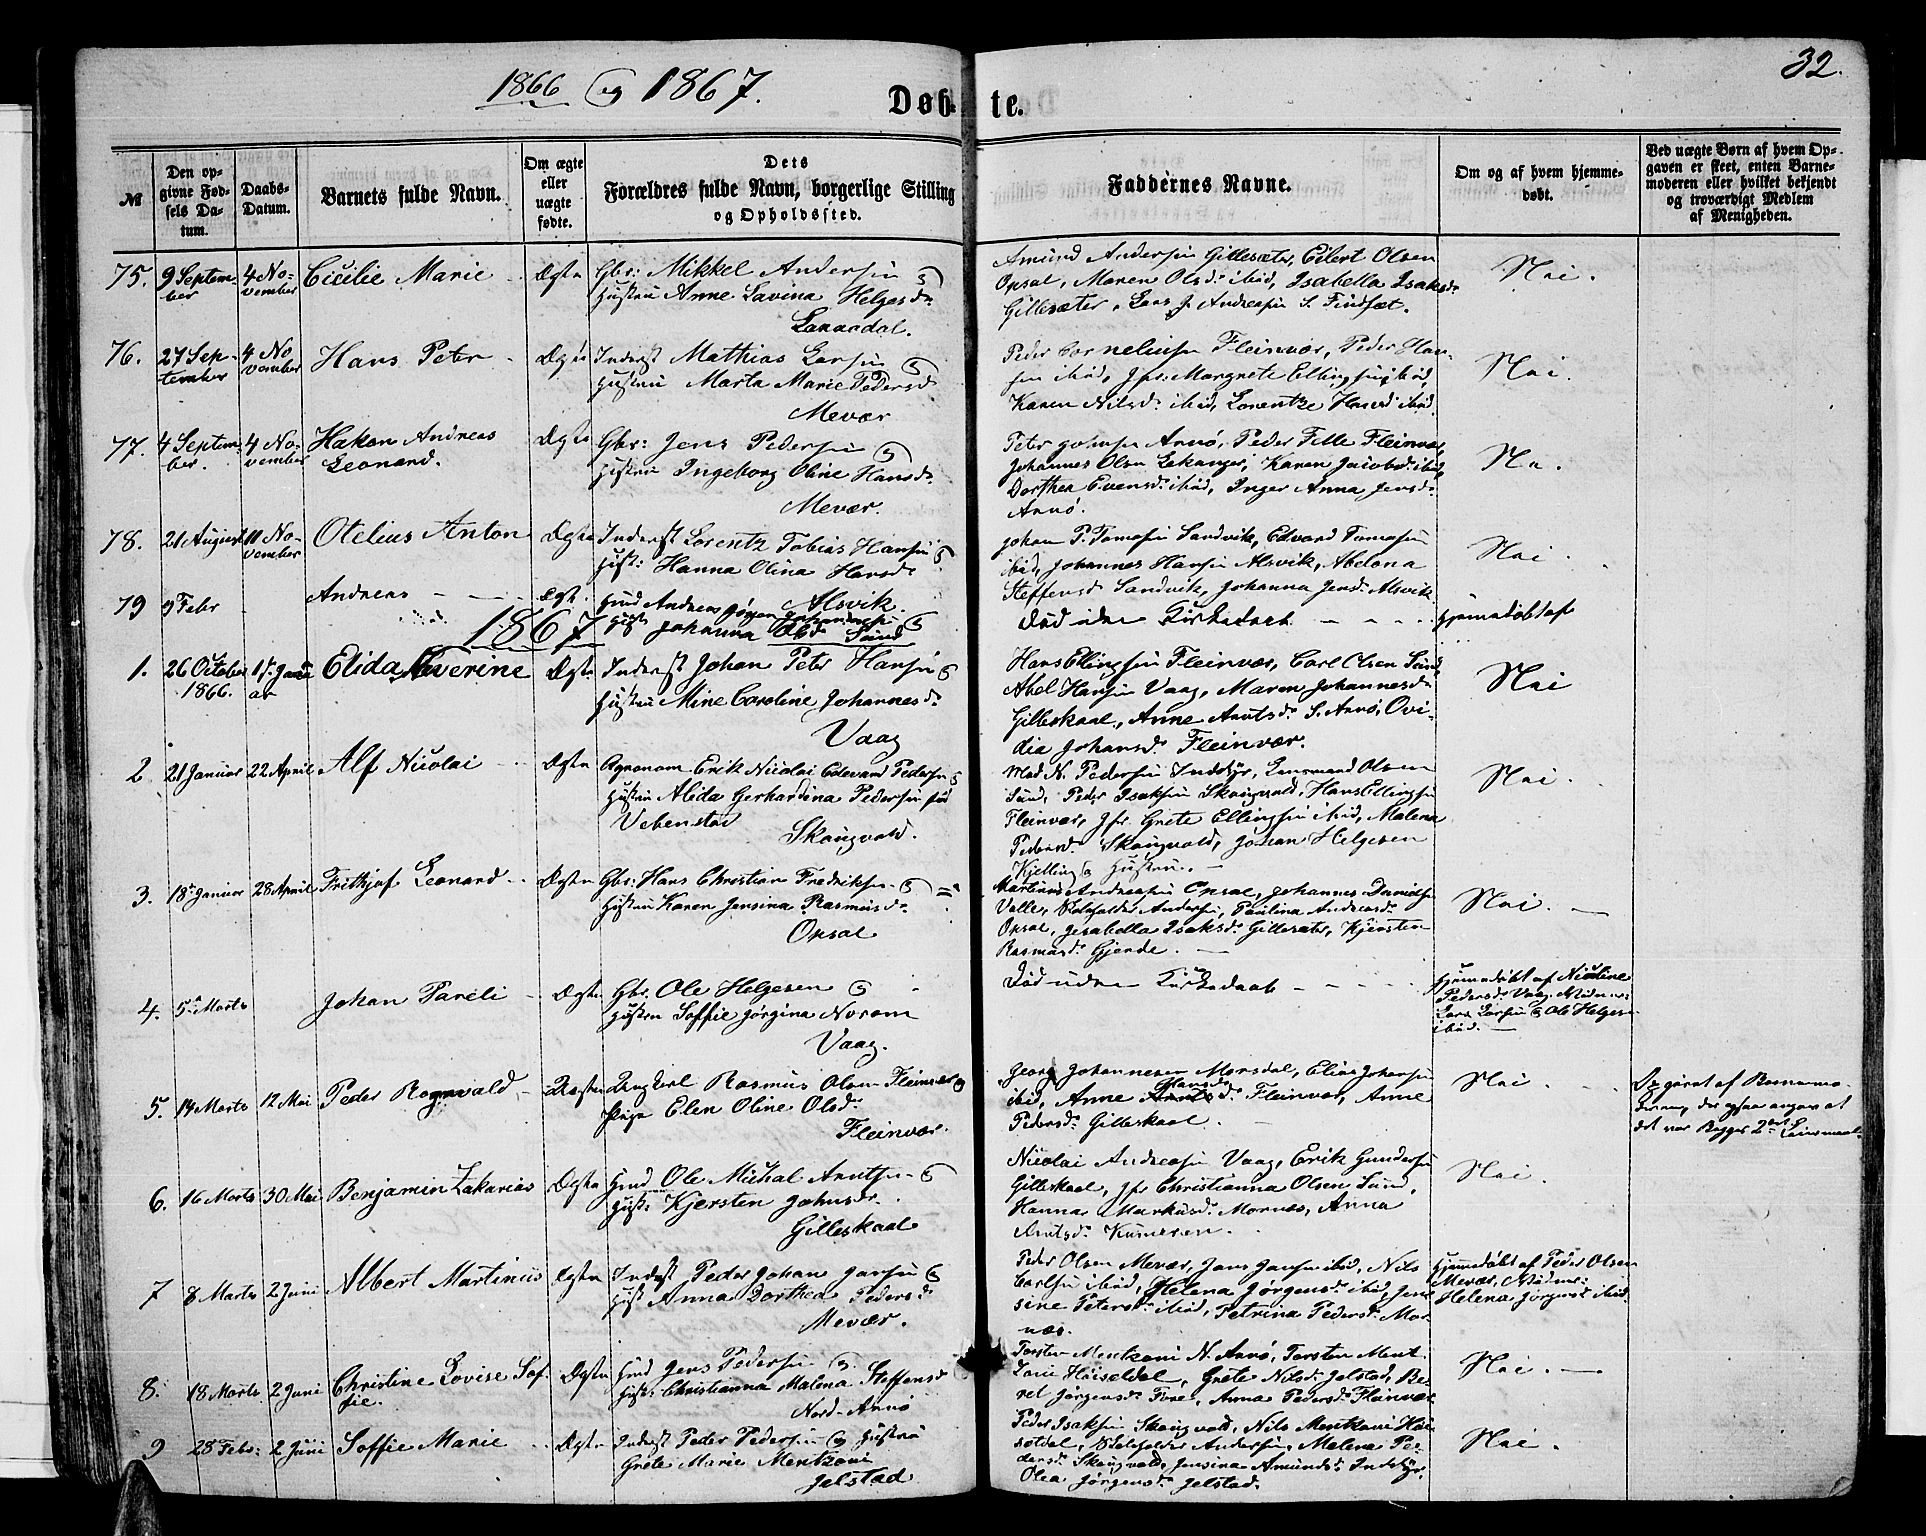 1866 og 1867.
32.
Døbte.
№
Den opgivne Fødsels Datum.
Daabs-Datum.
Barnets fulde Navn.
Om ægte eller uægte fødte.
Dets Forældres fulde Navn, borgerlige Stilling og Opholdssted.
Faddernes Navne.
Om og af hvem hjemmedøbt.
Ved uægte Børn af hvem Opgaven er skeet, enten Barnemoderen eller hvilket bekjendt og troværdigt Medlem af Menigheden.
75. 9 September 4 November Cicilie Marie Ægte
Gbr: Mikkel Andersen og
Hustru Anne Lavina Helgesd.
Amund Andersen Gillesæter, Eilert Olsen
Opsal, Maren Olsd. ibid, Isabella Isaksd.
Gillesæter, Lars J. Andreassen S. Findsæt.
Nei.
76. 27 September 4 November Hans Peter Ægte
Inderst Mathias Larsen og
Hustru Marta Marie Pedersd.
Mevær
Peder Cornelius Fleinvær, Peder Han-
sen ibid, Jfr. Margrete Ellingsen ibid,
Karen Nilsd. ibid, Lorentze Hansd ibid.
Nei.
77. 4 September 4 November Hakon Andreas Leonard. Ægte
Gbr: Jens Pedersen og
Hustru Ingeborg Oline Hansd.
Mevær.
Peter Johnsen Arnø, Peder Fleinvær,
Johannes Olsen Lekanger, Karen Jacobsd. ibid,
Dorthea Evensd. ibid, Inger Anna Jensd.
Arnø.
Nei.
78. 21 August 11 November Otelius Anton Ægte
Inderst Lorentz Tobias Hansen og
Hust: Hanna Olina Hansd.
Alsvik.
Johan P. Tomasen Sandvik, Edvard Tomasen
ibid, Johannes Hansen Alsvik, Abelona
Steffensd Sandvik, Johanna Jensd. Alsvik
Nei.
79 9 Febr Andreas Ægt.
Hmd Andreas Jørgen Johannesen og
Hust Johanna Olsd. Sund
Død uden Kirkedaab
Hjemmedøbt af
1867
1. 26 October 1866. 17 Januar Elida Severine Ægte
Inderst Johan Peter Hansen og
Hustru Mine Caroline Johannesd.
Vaag
Hans Ellingsen Fleinvær, Carl Olsen Sund,
Abel Hansen Vaag, Maren Johannesd.
Gilleskaal, Anne Arntsd. S. Arnø, Ovi-
dia Johansd. Fleinvær.
Nei
2 21 Januar 22 April Alf Nicolai Ægte
Agronom Erik Nicolai Edevard Pedersen og
Hustru Alida Gerhardina Pedersen fød
Vebenstad Skaugvold.
N. Pedersen Inddyr, Lensmand Olsen
Sund, Peder Isaksen Skaugvold, Hans Ellingsen
Fleinvær, Jfr. Grete Ellingsen ibid, Malena
Pedersd. Skaugvold, Johan Helgesen
Kjelling og Hustru.
Nei.
3. 18. Januar 28 April Frithjof Leonard Ægte
Gbr: Hans Christian Fredriksen og
Hustru Karen Jensina Rasmusd.
Opsal
Martinus Andreassen Opsal, Johannes Danielsen
Valle, Andersen, Paulina Andreasd.
Opsal, Jesabella Isaksd. Gillesæter, Kjersten
Rasmusd. Gjerde.
Nei.
4. 5. Marts Johan Pareli Ægte
Gbr. Ole Helgesen og
Hustru Soffie Jørgina Norom
Vaag.
Død uden Kirkedaab
Hjemmedøbt af Nicoline
Pedersd. Vaag. Vidner:
Lars Larsen og Ole Helgesen
ibid.
5. 14 Marts 12 Mai Peder Rognvald Uægte
Ungkarl Rasmus Olsen Fleinvær og
Pige Elen Oline Olsd.
Fleinvær.
Georg Johannesen Morsdal, Elias Johansen
ibid, Anne Hansd. Fleinvær, Anne
Pedersd. Gilleskaal.
Nei.
Opgivet af Barnemo-
deren, der ogsaa angav at
det var Begges 2det Leiermaal.
6. 16 Marts 30 Mai Benjamin Zakarias Ægte
Hmd Ole Michal Arntsen og
Hust: Kjersten Johnsdr.
Gilleskaal
Nicolai Andreasen Vaag, Erik Gundersen
Gilleskaal, Jfr Christianna Olsen Sund,
Hanna Markusd. Mornes, Anna
Arntsd.
Nei.
7 8 Marts 2 Juni Albert Martinus Ægte
Inderst Peder Johan Jansen og
Hust Anna Dorthea Pedersd.
Mevær.
Peder Olsen Mevær, Jens Jansen ibid, Nils
Carlsen ibid, Helena Jørgensd. ibid, Jen-
sine Petersd. ibid, Petrina Pedersd. Mor-
næs.
Hjemmedøbt af Peder Olsen
Mevær, Vidner:
Helena Jørgensd. ibid.
8. 18 Marts 2 Juni Christine Lovise Soffie. Ægte
Hmd Jens Pedersen og
Hust: Christianna Malena Steffensd
Nord-Arnø
Torsten Mentzoni N. Arnø, Torsten Ment-
zoni Høiseldal, Grete Nilsd. Jelstad, Be-
ret Jørgensd. Fore, Anna Pedersd. Fleinvær
Nei.
9 28 Febr: 2 Juni Soffie Marie Ægte
Inderst Peder Pedersen og Hustru
Grete Marie Mentzoni
Jelstad
Peder Isaksen Skaugvold, Nils Mentzoni Høi-
seldal, Andersen, Malena Pe-
dersd. Skaugvold, Jensina Amundsd. Inddyr,
Olea Jørgensd. Jelstad.
Nei.